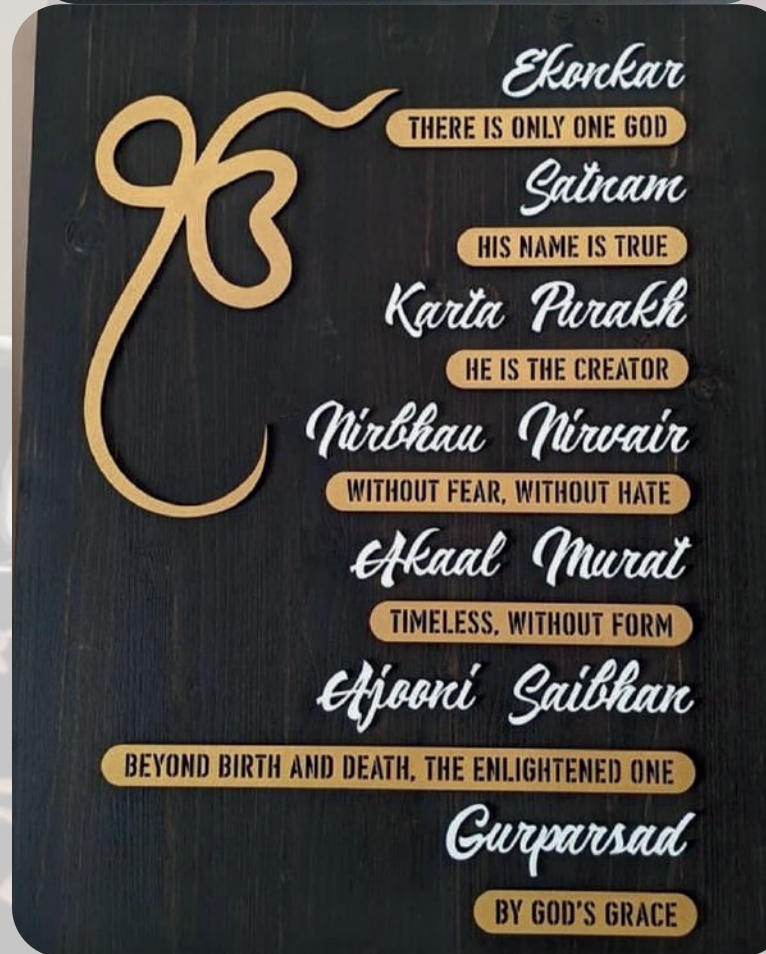 ੴ
Ekonkar
THERE IS ONLY ONE GOD
Satnam
HIS NAME IS TRUE
Karta Purakh
HE IS THE CREATOR
Nirbhau Nirvair
WITHOUT FEAR, WITHOUT HATE
Akaal Murat
TIMELESS, WITHOUT FORM
Ajooni Saibhan
BEYOND BIRTH AND DEATH, THE ENLIGHTENED ONE
Gurparsad
BY GOD'S GRACE